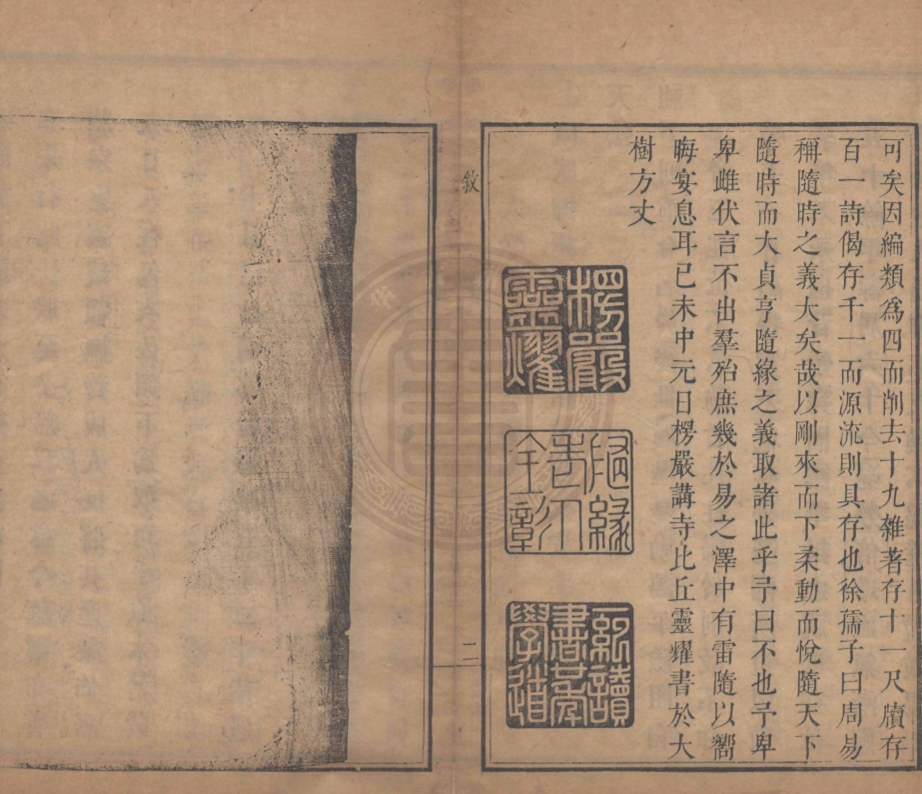 可矣因編類爲四而削去十九雜著存十一尺牘存
百一詩偈存千一而源流則具存也徐孺子曰周易
稱隨時之義大矣哉以剛來而下柔動而悅隨天下
隨時而大貞亨隨緣之義取諸此乎予曰不也予卑
卑雌伏言不出羣殆庶幾於易之澤中有雷隨以嚮
晦宴息耳已未中元日楞嚴講寺比丘靈耀書於大
樹方丈
楞嚴
靈燿
隨緣
全章
讀
書
學道
敘
二